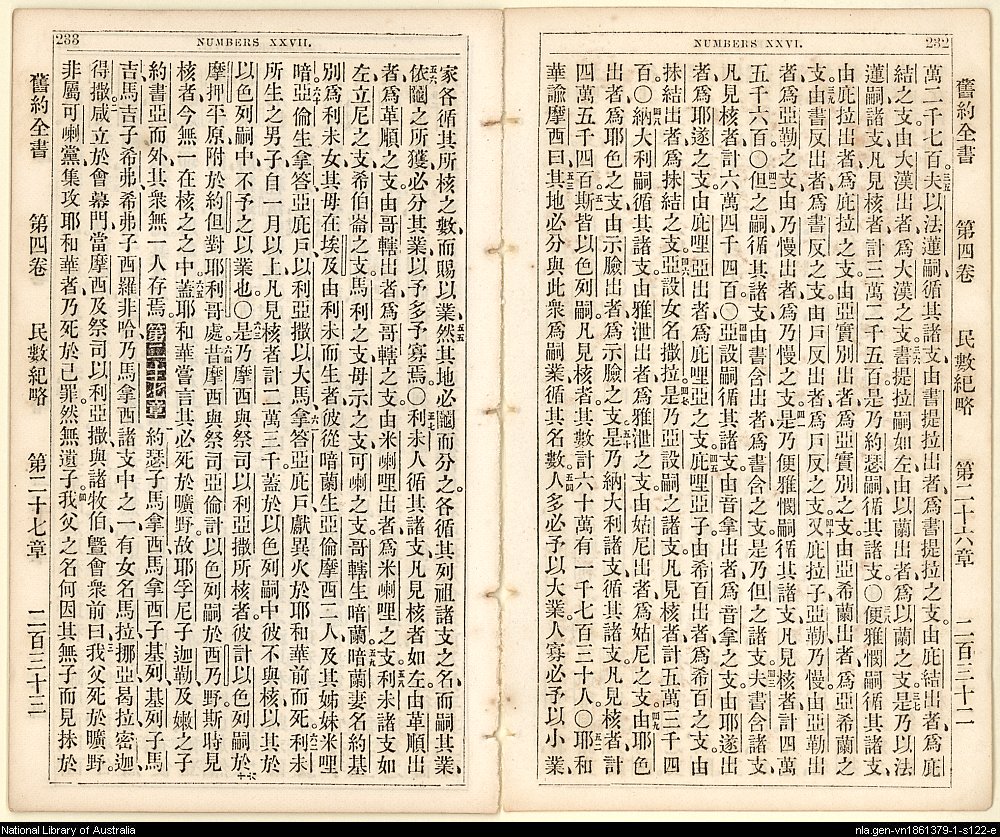 232
NUMBERS XXVI.
舊約全書 第四卷 民數紀略 第二十六章 二百三十二
萬二千七百夫以法蓮嗣循其諸支由書提拉出者爲書提拉之支由庇結出者爲庇
結之支由大漢出者爲大漢之支書提拉嗣如左由以蘭出者爲以蘭之支是乃以法
蓮嗣諸支凡見核者計三萬二千五百是乃約瑟嗣循其諸支〇便雅憫嗣循其諸支
由庇拉出者爲庇拉之支由亞實別出者爲亞實別之支由亞希蘭出者爲亞希蘭之
支由書反出者爲書反之支由戶反出者爲戶反之支又庇拉子亞勒乃慢由亞勒出
者爲亞勒之支由乃慢出者爲乃慢之支是乃便雅憫嗣循其諸支凡見核者計四萬
五千六百〇但之嗣循其諸支由書含出者爲書含之支是乃但之諸支夫書含諸支
凡見核者計六萬四千四百〇亞設嗣循其諸支由音拿出者爲音拿之支由耶遂出
者爲耶遂之支由庇哩亞出者爲庇哩亞之支庇哩亞子由希百出者爲希百之支由
抹結出者爲抹結之支亞設女名撒拉是乃亞設嗣之諸支凡見核者計五萬三千四
百〇納大利嗣循其諸支由雅泄出者爲雅泄之支由姑尼出者爲姑尼之支由耶色
出者爲耶色之支由示臉出者爲示臉之支是乃納大利諸支循其諸支凡見核者計
四萬五千四百斯皆以色列嗣凡見核者其數計六十萬有一千七百三十人〇耶和
華諭摩西曰其地必分與此衆爲嗣業循其名數人多必予以大業人寡必予以小
233
NUMBERS XXVII.
家各循其所核之數而賜以業然其地必鬮而分之各循其列祖諸支之名而嗣其業
依鬮之所獲必分其業以予多予寡焉〇利未人循其諸支凡見核者如左由革順出
者爲革順之支由哥轄出者爲哥轄之支由米喇哩出者爲米喇哩之支利未諸支如
左立尼之支希伯崙之支馬利之支母示之支可喇之支哥轄生暗蘭暗蘭妻名約基
別爲利未女其母在埃及由利未而生者彼從暗蘭生亞倫摩西二人及其姊妹米哩
暗亞倫生拿答亞庇戶以利亞撒以大馬拿答亞庇戶獻異火於耶和華前而死利未
所生之男子自一月以上凡見核者計二萬三千蓋於以色列嗣中彼不與核以其於
以色列嗣中不予之以業也〇是乃摩西與祭司以利亞撒所核者彼計以色列嗣於
摩押平原附於約但對耶利哥處昔摩西與祭司亞倫計以色列嗣於西乃野斯時見
核者今無一在核之之中蓋耶和華嘗言其必死於曠野故耶孚尼子迦勒及嫩之子
約書亞而外其衆無一人存焉第二十七章約瑟子馬拿西馬拿西子基列基列子馬
吉馬吉子希弗希弗子西羅非哈乃馬拿西諸支中之一有女名馬拉挪亞曷拉密迦
得撒咸立於會幕門當摩西及祭司以利亞撒與諸牧伯曁會衆前曰我父死於曠野
非屬可喇黨集攻耶和華者乃死於己罪然無遺子我父之名何因其無子而見抹於
舊約全書 第四卷 民數紀略 第二十七章 二百三十三
National Library of Australia
nla.gen-vn1861379-1-s122-e